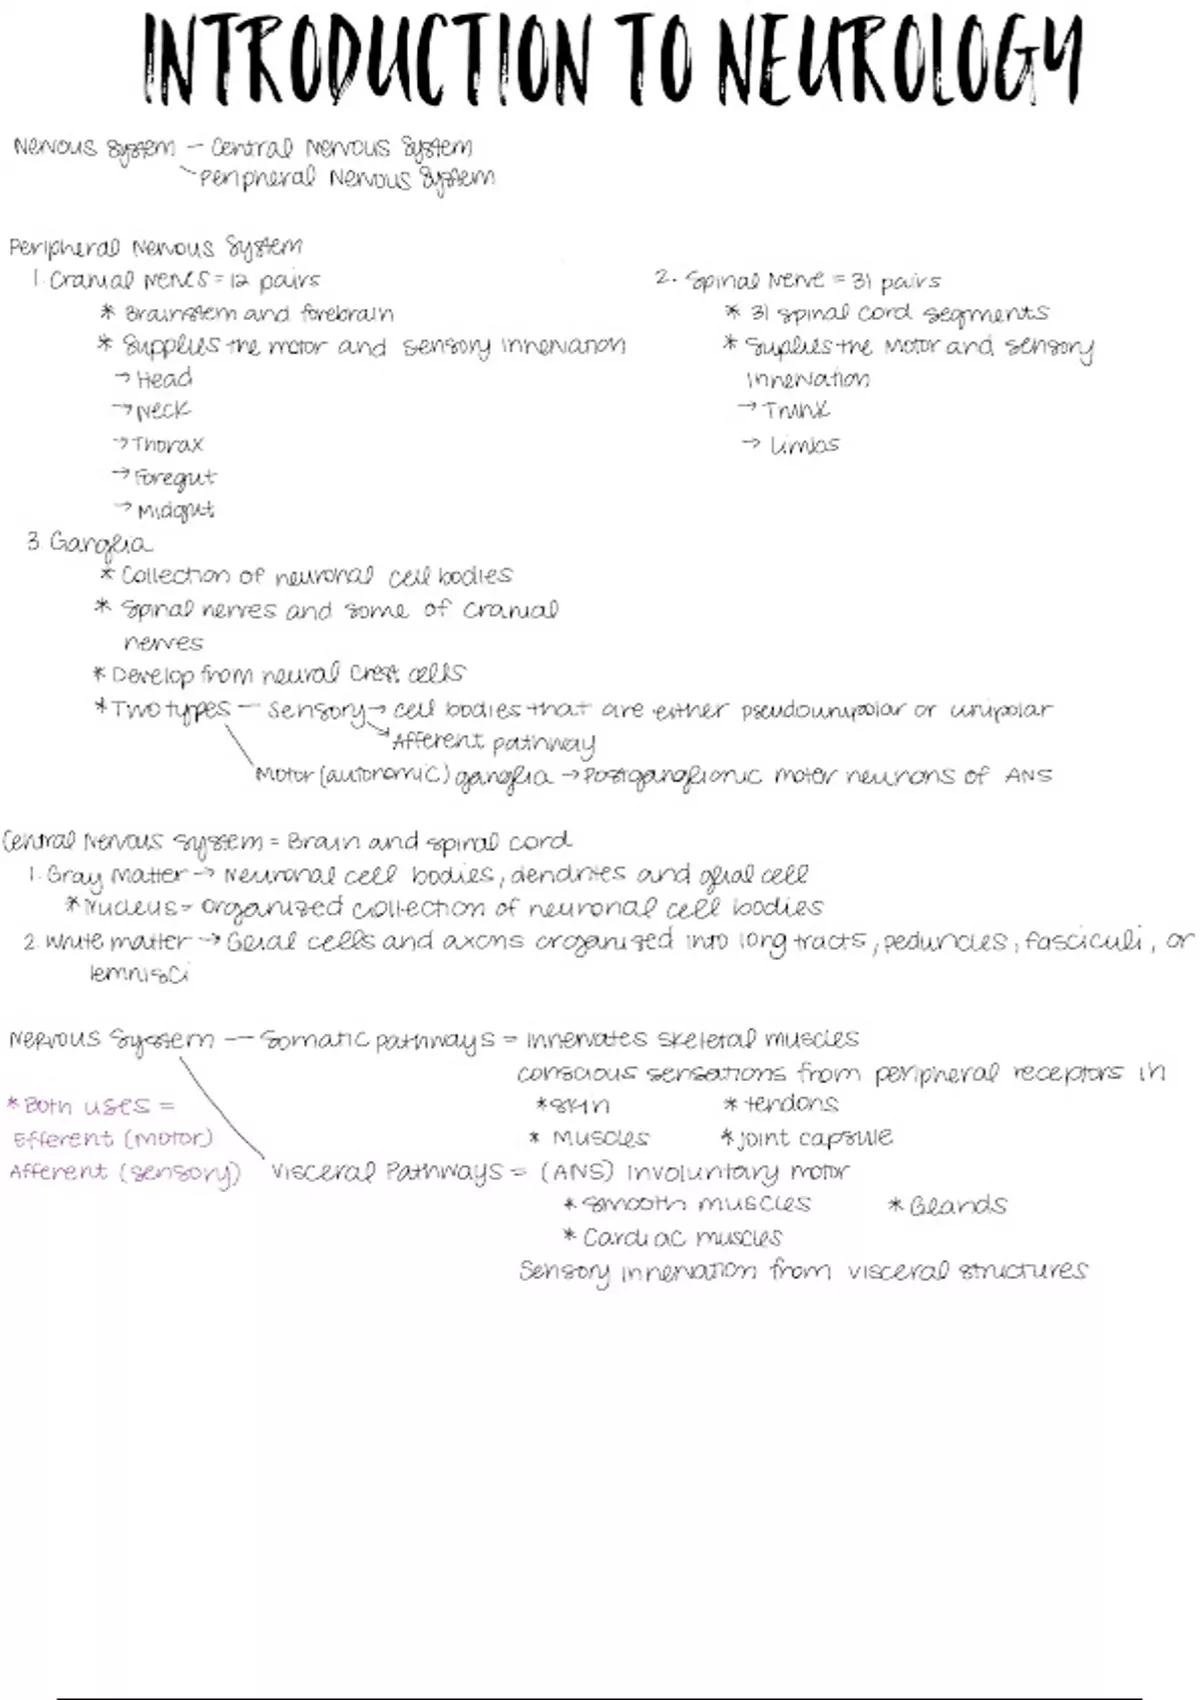 INTRODUCTION TO NEUROLOGY
Nervous System — Central Nervous System
Peripheral Nervous System
Peripheral Nervous System
1. Cranial Nerves = 12 pairs
* Brainstem and forebrain
* Supplies the motor and sensory innervation
→ Head
→ Neck
→ Thorax
→ Foregut
→ Midgut
2. Spinal Nerve = 31 pairs
* 31 spinal cord segments
* Suplies the Motor and sensory
innervation
→ Trunk
→ Limbs
3 Ganglia
* Collection of neuronal cell bodies
* Spinal nerves and some of cranial
nerves
* Develop from neural crest cells
* Two types — Sensory → cell bodies that are either pseudounipolar or unipolar
→ Afferent pathway
Motor (autonomic) ganglia → Postganglionic motor neurons of ANS
Central Nervous System = Brain and spinal cord
1. Gray Matter → Neuronal cell bodies, dendrites and glial cell
* Nucleus = Organized collection of neuronal cell bodies
2. White matter → Glial cells and axons organized into long tracts, peduncles, fasciculi, or
lemnisci
Nervous System — Somatic pathways = innervates skeletal muscles
conscious sensations from peripheral receptors in
* skin * tendons
* Muscles * joint capsule
* Both uses =
Efferent (motor)
Afferent (sensory)
Visceral Pathways = (ANS) Involuntary motor
* Smooth muscles * Glands
* Cardiac muscles
Sensory innervation from visceral structures